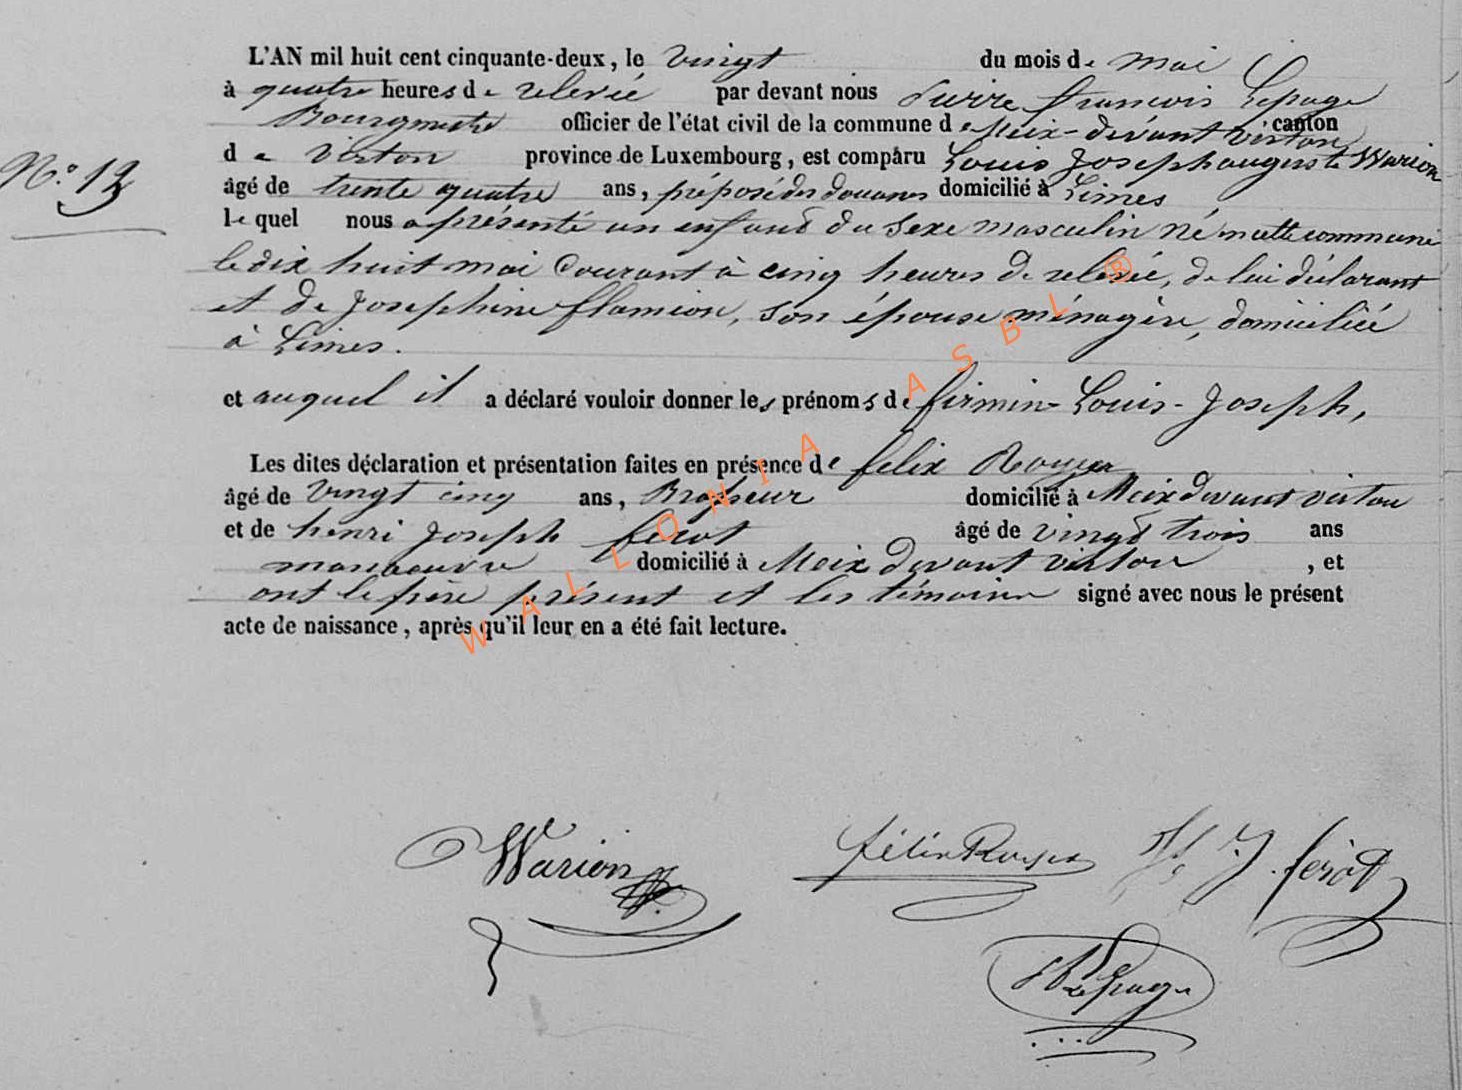 L'AN mil huit cent cinquante-deux, le vingt du mois de mai
à quatre heures de relevée par devant nous Pierre françois Lepage
Bourgmestre officier de l'état civil de la commune de Meix-devant virton canton
N.º 13
de Virton province de Luxembourg, est comparu Louis Joseph auguste Warion
âgé de trente quatre ans, préposé des douanes domicilié à Limes
lequel nous a présenté un enfand du sexe masculin né en cette commune
le dix huit mai Courant à cinq heures de relevée, de lui déclarant
et de Josephine flamion, son épouse ménagère, domiciliée
à Limes.
et auquel il a déclaré vouloir donner les prénoms de firmin-Louis-Joseph,
Les dites déclaration et présentation faites en présence de felix
âgé de vingt cinq ans, Brasseur domicilié à Meix devant virton
et de henri Joseph feriot âgé de vingt trois ans
manoeuvre domicilié à Meix devant virton, et
ont le père présent et les témoins signé avec nous le présent
acte de naissance, après qu'il leur en a été fait lecture.
Warion
félix
H. J. feriot
Lepage
WALLONIA ASBL ®